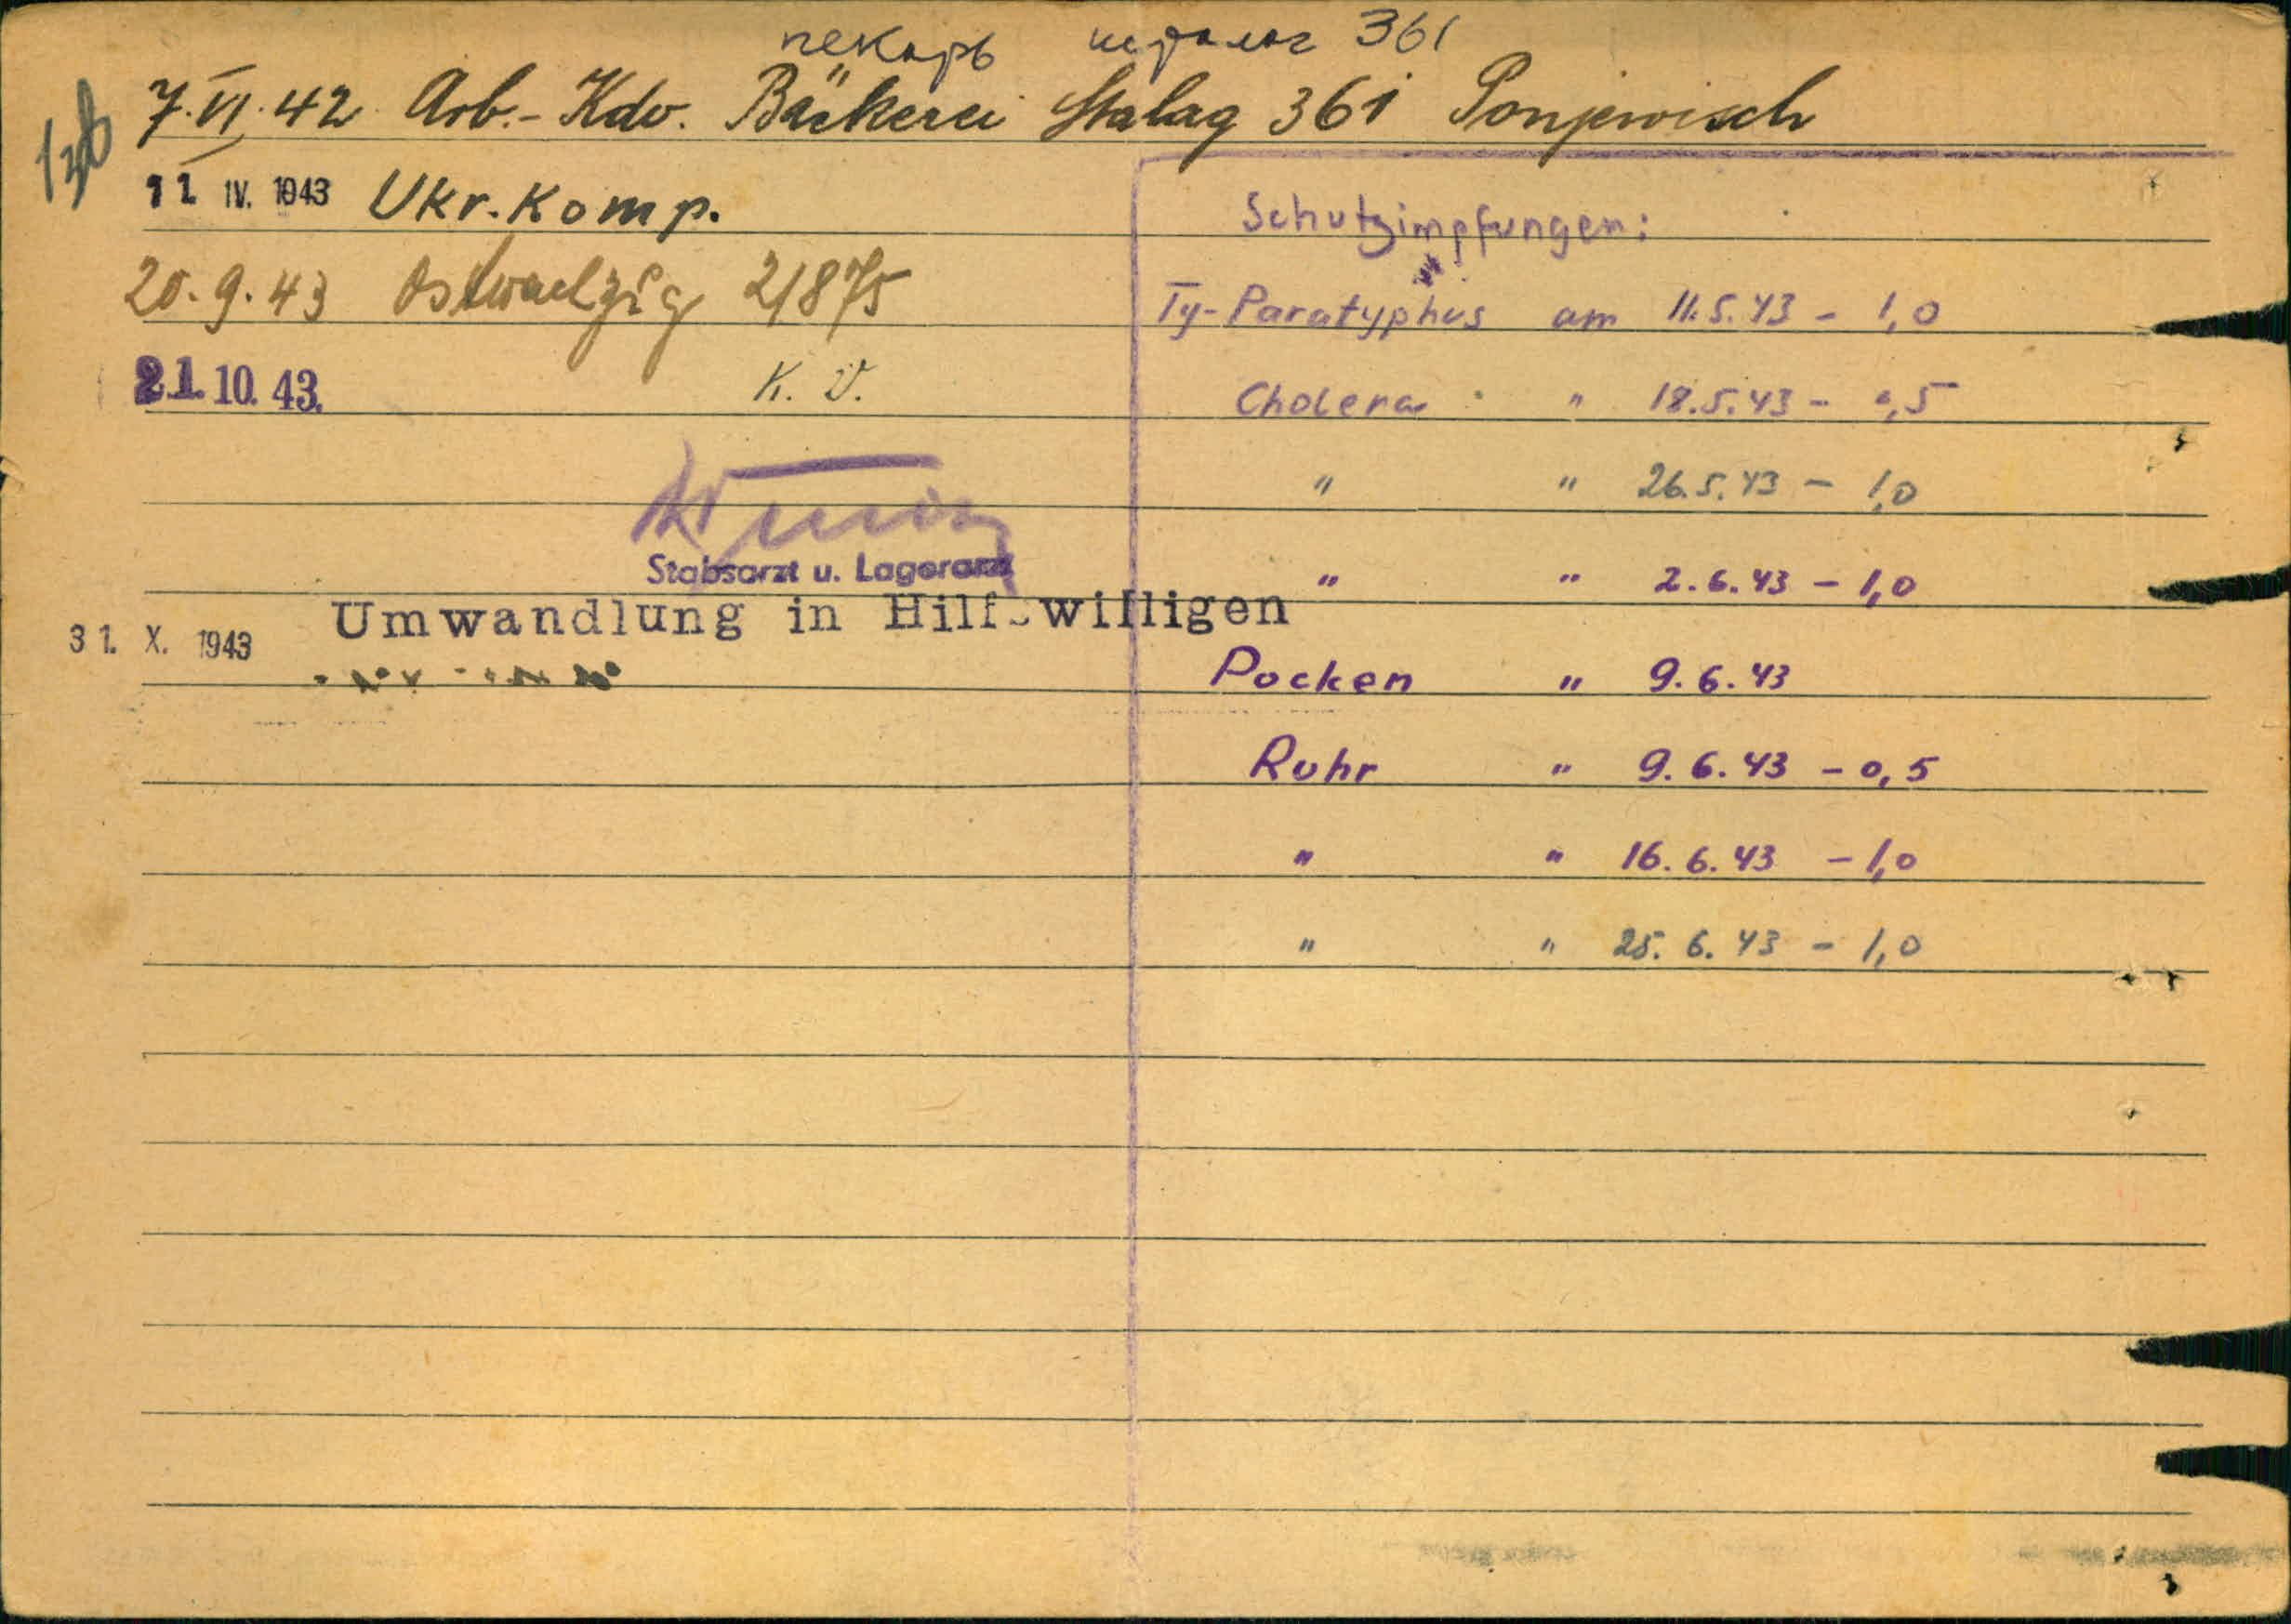 пекарь шталаг 361
7.VI.42 Arb.-Kdo. Bäckerei Stalag 361 Ponjewisch
11. IV. 1943 Ukr. Komp.
20.9.43 Ostwachzug 21875
21.10.43. K. V.
Stabsarzt u. Lagerarzt
31. X. 1943 Umwandlung in Hilfswilligen
Schutzimpfungen:
Ty-Paratyphus am 11.5.43 - 1,0
Cholera " 18.5.43 - 0,5
" " 26.5.43 - 1,0
" " 2.6.43 - 1,0
Pocken " 9.6.43
Ruhr " 9.6.43 - 0,5
" " 16.6.43 - 1,0
" " 25.6.43 - 1,0